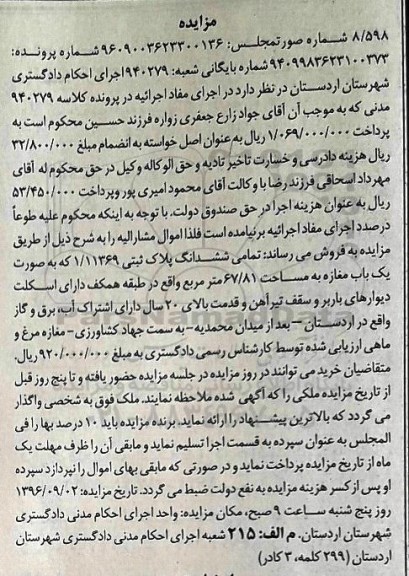 مزایده
۸/۵۹۸ شماره صورتمجلس: ۹۶۰۹۰۰۳۶۲۳۳۰۰۱۳۶ شماره پرونده:
۹۴۰۹۹۸۳۶۲۳۱۰۰۳۷۳ شماره بایگانی شعبه: ۹۴۰۲۷۹ اجرای احکام دادگستری
شهرستان اردستان در نظر دارد در اجرای مفاد اجرائیه در پرونده کلاسه ۹۴۰۲۷۹
مدنی که به موجب آن آقای جواد زارع جعفری زواره فرزند حسین محکوم است به
پرداخت ۱/۰۶۹/۰۰۰/۰۰۰ ریال به عنوان اصل خواسته به انضمام مبلغ ۳۲/۸۰۰/۰۰۰
ریال هزینه دادرسی و خسارت تاخیر تادیه و حق الوکاله وکیل در حق محکوم له آقای
مهرداد اسحاقی فرزند رضا با وکالت آقای محمود امیری پور و پرداخت ۵۳/۴۵۰/۰۰۰
ریال به عنوان هزینه اجرا در حق صندوق دولت. با توجه به اینکه محکوم علیه طوعاً
درصدد اجرای مفاد اجرائیه برنیامده است فلذا اموال مشارالیه را به شرح ذیل از طریق
مزایده به فروش می رساند: تمامی ششدانگ پلاک ثبتی ۱/۱۱۳۶۹ که به صورت
یک باب مغازه به مساحت ۶۷/۸۱ متر مربع واقع در طبقه همکف دارای اسکلت
دیوارهای باربر و سقف تیرآهن و قدمت بالای ۲۰ سال دارای اشتراک آب، برق و گاز
واقع در اردستان – بعد از میدان محمدیه – به سمت جهاد کشاورزی – مغازه مرغ و
ماهی ارزیابی شده توسط کارشناس رسمی دادگستری به مبلغ ۹۲۰/۰۰۰/۰۰۰ ریال.
متقاضیان خرید می توانند در روز مزایده در جلسه مزایده حضور یافته و تا پنج روز قبل
از تاریخ مزایده ملکی را که آگهی شده ملاحظه نمایند. ملک فوق به شخصی واگذار
می گردد که بالاترین پیشنهاد را ارائه نماید. برنده مزایده باید ۱۰ درصد بها را فی
المجلس به عنوان سپرده به قسمت اجرا تسلیم نماید و مابقی آن را ظرف مهلت یک
ماه از تاریخ مزایده پرداخت نماید و در صورتی که مابقی بهای اموال را نپردازد سپرده
او پس از کسر هزینه مزایده به نفع دولت ضبط می گردد. تاریخ مزایده: ۱۳۹۶/۰۹/۰۲
روز پنج شنبه ساعت ۹ صبح، مکان مزایده: واحد اجرای احکام مدنی دادگستری
شهرستان اردستان. م الف: ۲۱۵ شعبه اجرای احکام مدنی دادگستری شهرستان
اردستان (۲۹۹ کلمه، ۳ کادر)